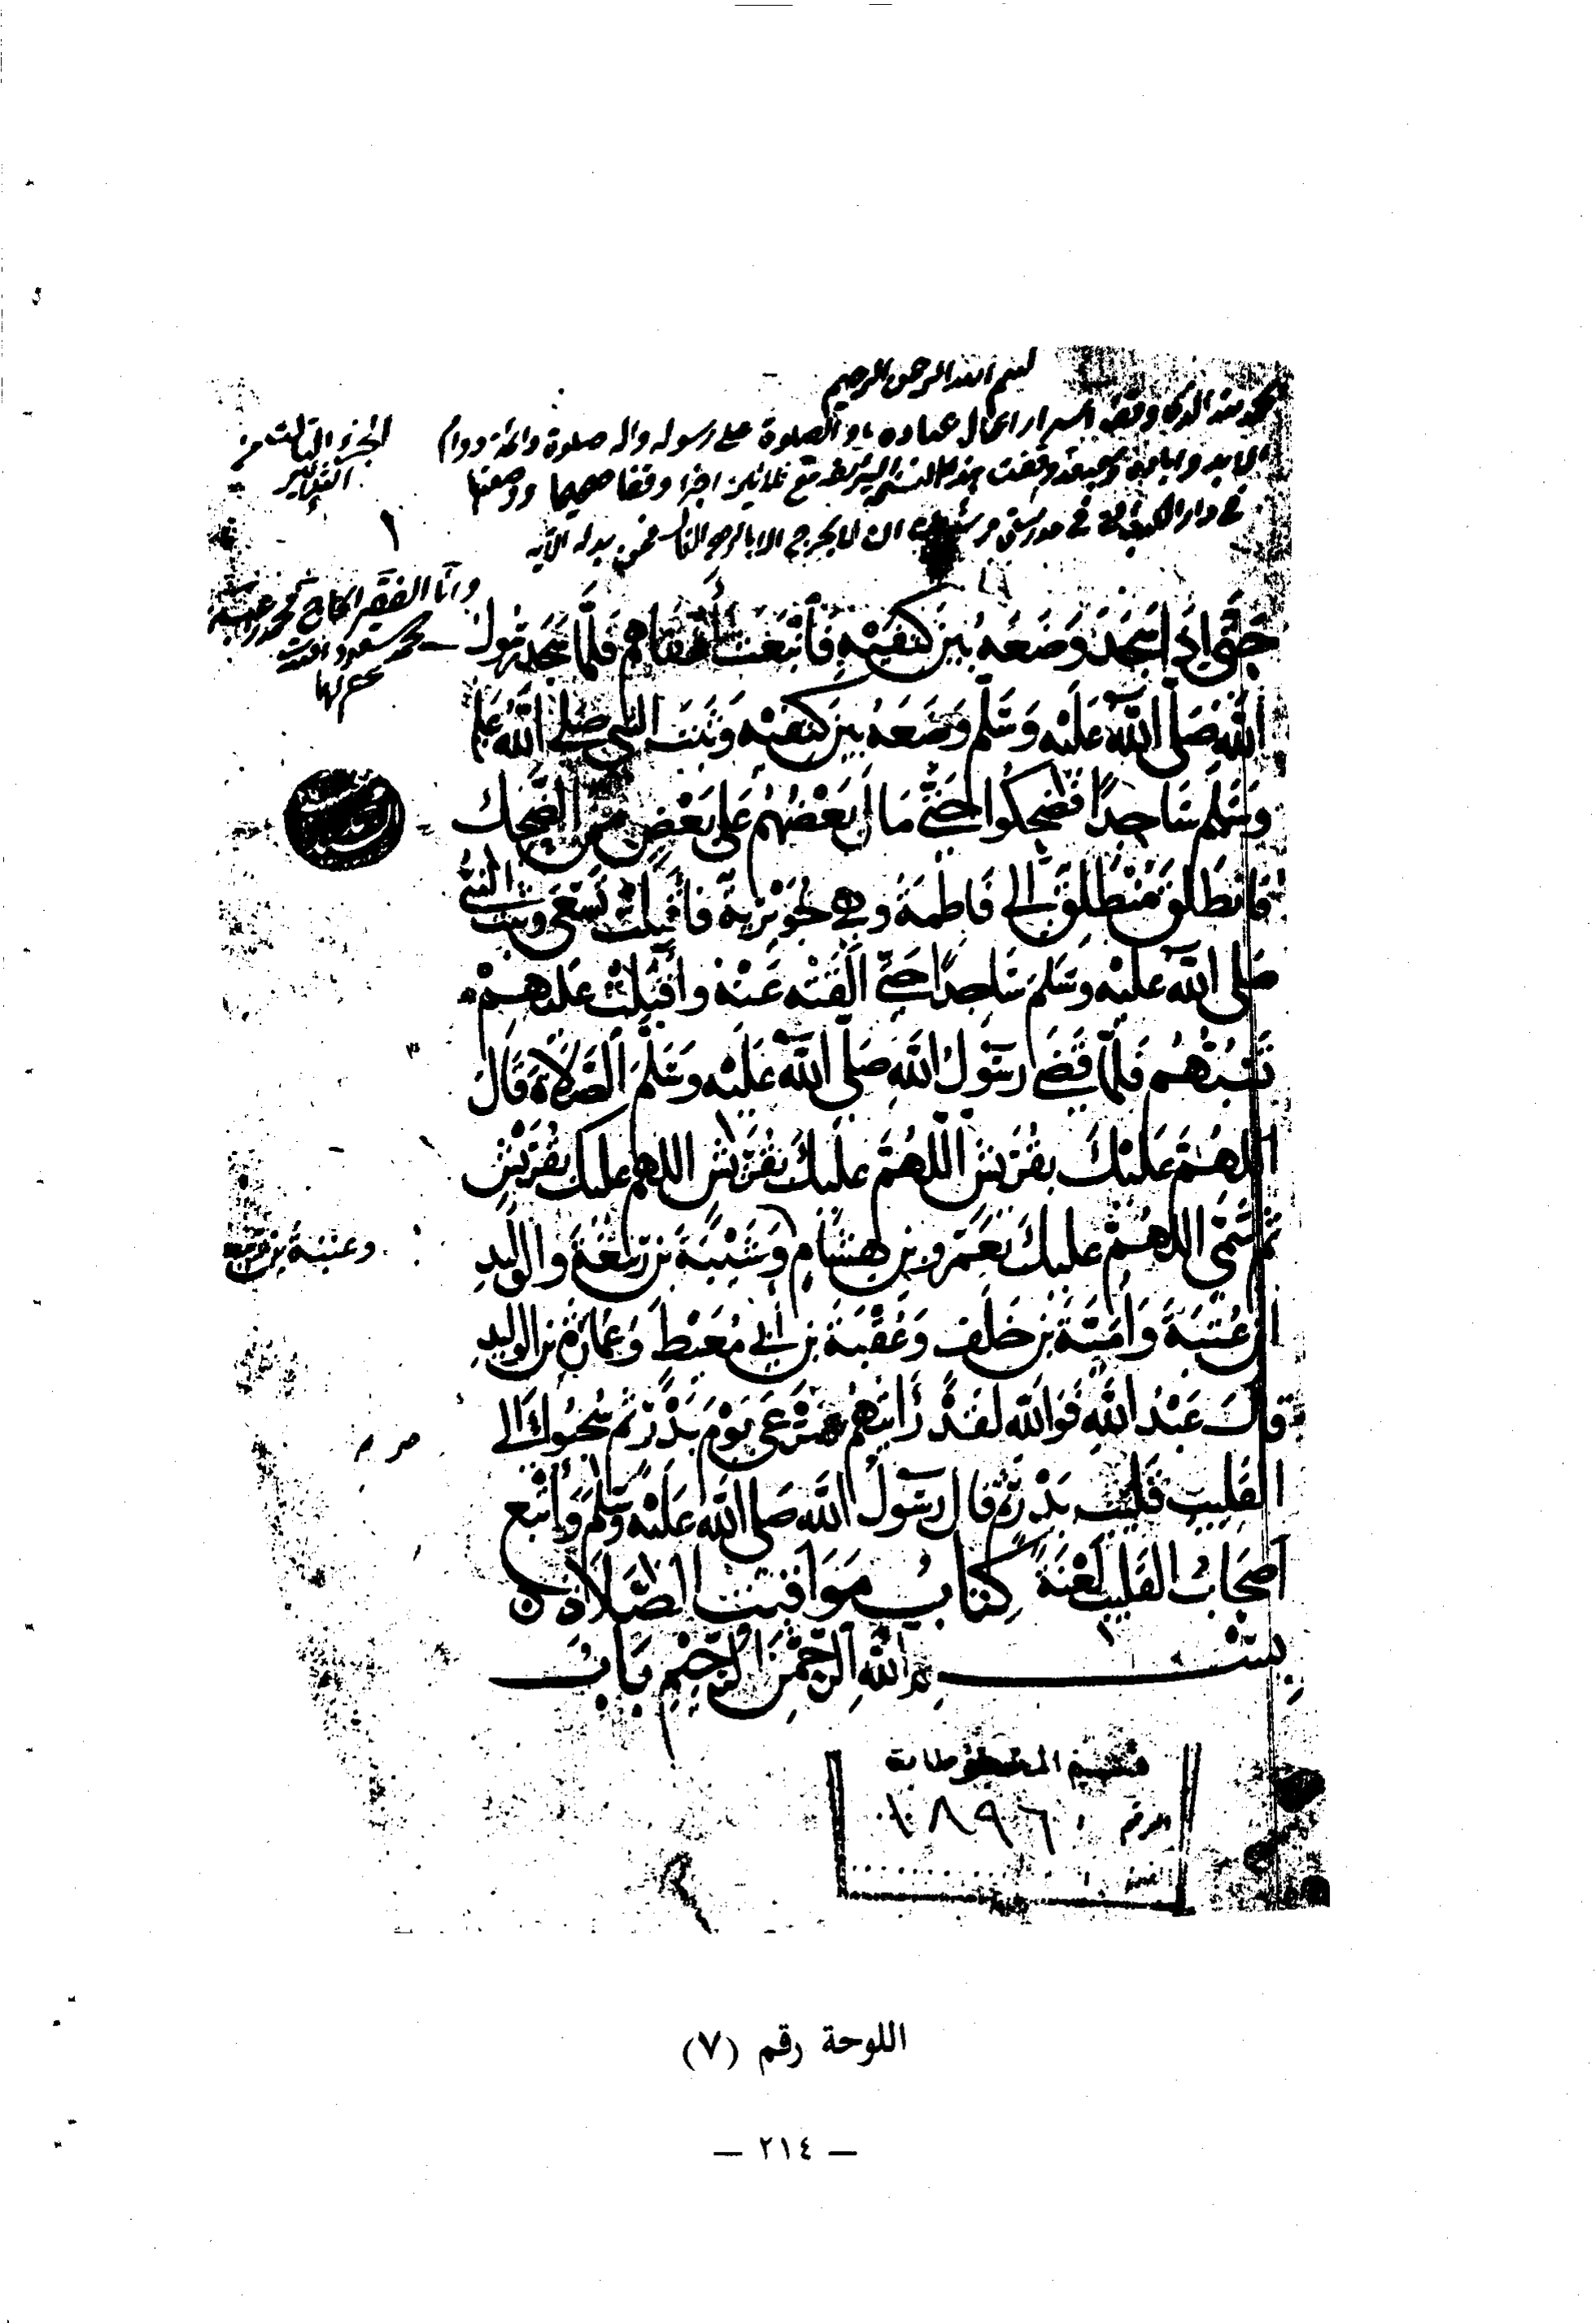 بسم الله الرحمن الرحيم
وقف اسرار اعمال عباده والصلوة على رسوله واله صلوة دائمة دوام
مع ثلاثين اجزا وقفا صحيحا ووضعتها
في دار الكتب في مدرستي ان لا يخرج الا بالرهن فمن بدله الآية
الجزء الثالث من
١
وانا الفقير الحاج محمد
حَتَّى إِذَا سَجَدَ وَضَعَهُ بَيْنَ كَتِفَيْهِ فَانْبَعَثَ أَشْقَاهُمْ فَلَمَّا سَجَدَ رَسُولُ
اللهِ صَلَّى اللهُ عَلَيْهِ وَسَلَّمَ وَضَعَهُ بَيْنَ كَتِفَيْهِ وَثَبَتَ النَّبِيُّ صَلَّى اللهُ عَلَيْهِ
وَسَلَّمَ سَاجِدًا فَضَحِكُوا حَتَّى مَالَ بَعْضُهُمْ عَلَى بَعْضٍ مِنَ الضَّحِكِ
فَانْطَلَقَ مُنْطَلِقٌ إِلَى فَاطِمَةَ وَهِيَ جُوَيْرِيَةٌ فَأَقْبَلَتْ تَسْعَى وَثَبَتَ النَّبِيُّ
صَلَّى اللهُ عَلَيْهِ وَسَلَّمَ سَاجِدًا حَتَّى أَلْقَتْهُ عَنْهُ وَأَقْبَلَتْ عَلَيْهِمْ
تَسُبُّهُمْ فَلَمَّا قَضَى رَسُولُ اللهِ صَلَّى اللهُ عَلَيْهِ وَسَلَّمَ الصَّلَاةَ قَالَ
اللَّهُمَّ عَلَيْكَ بِقُرَيْشٍ اللَّهُمَّ عَلَيْكَ بِقُرَيْشٍ اللَّهُمَّ عَلَيْكَ بِقُرَيْشٍ
ثُمَّ سَمَّى اللَّهُمَّ عَلَيْكَ بِعَمْرِو بْنِ هِشَامٍ وَشَيْبَةَ بْنِ رَبِيعَةَ وَالْوَلِيدِ
وعتبة بن ربيعة
ابْنِ عُتْبَةَ وَأُمَيَّةَ بْنِ خَلَفٍ وَعُقْبَةَ بْنِ أَبِي مُعَيْطٍ وَعُمَارَةَ بْنِ الْوَلِيدِ
قَالَ عَبْدُ اللهِ فَوَاللهِ لَقَدْ رَأَيْتُهُمْ صَرْعَى يَوْمَ بَدْرٍ ثُمَّ سُحِبُوا إِلَى
الْقَلِيبِ قَلِيبِ بَدْرٍ ثُمَّ قَالَ رَسُولُ اللهِ صَلَّى اللهُ عَلَيْهِ وَسَلَّمَ وَأُتْبِعَ
أَصْحَابُ الْقَلِيبِ لَعْنَةً كِتَابُ مَوَاقِيتِ الصَّلَاةِ
بِسْمِ اللهِ الرَّحْمَنِ الرَّحِيمِ بَابُ
قسم المخطوطات
الرقم ١٨٩٦
اللوحة رقم (٧)
— ٢١٤ —